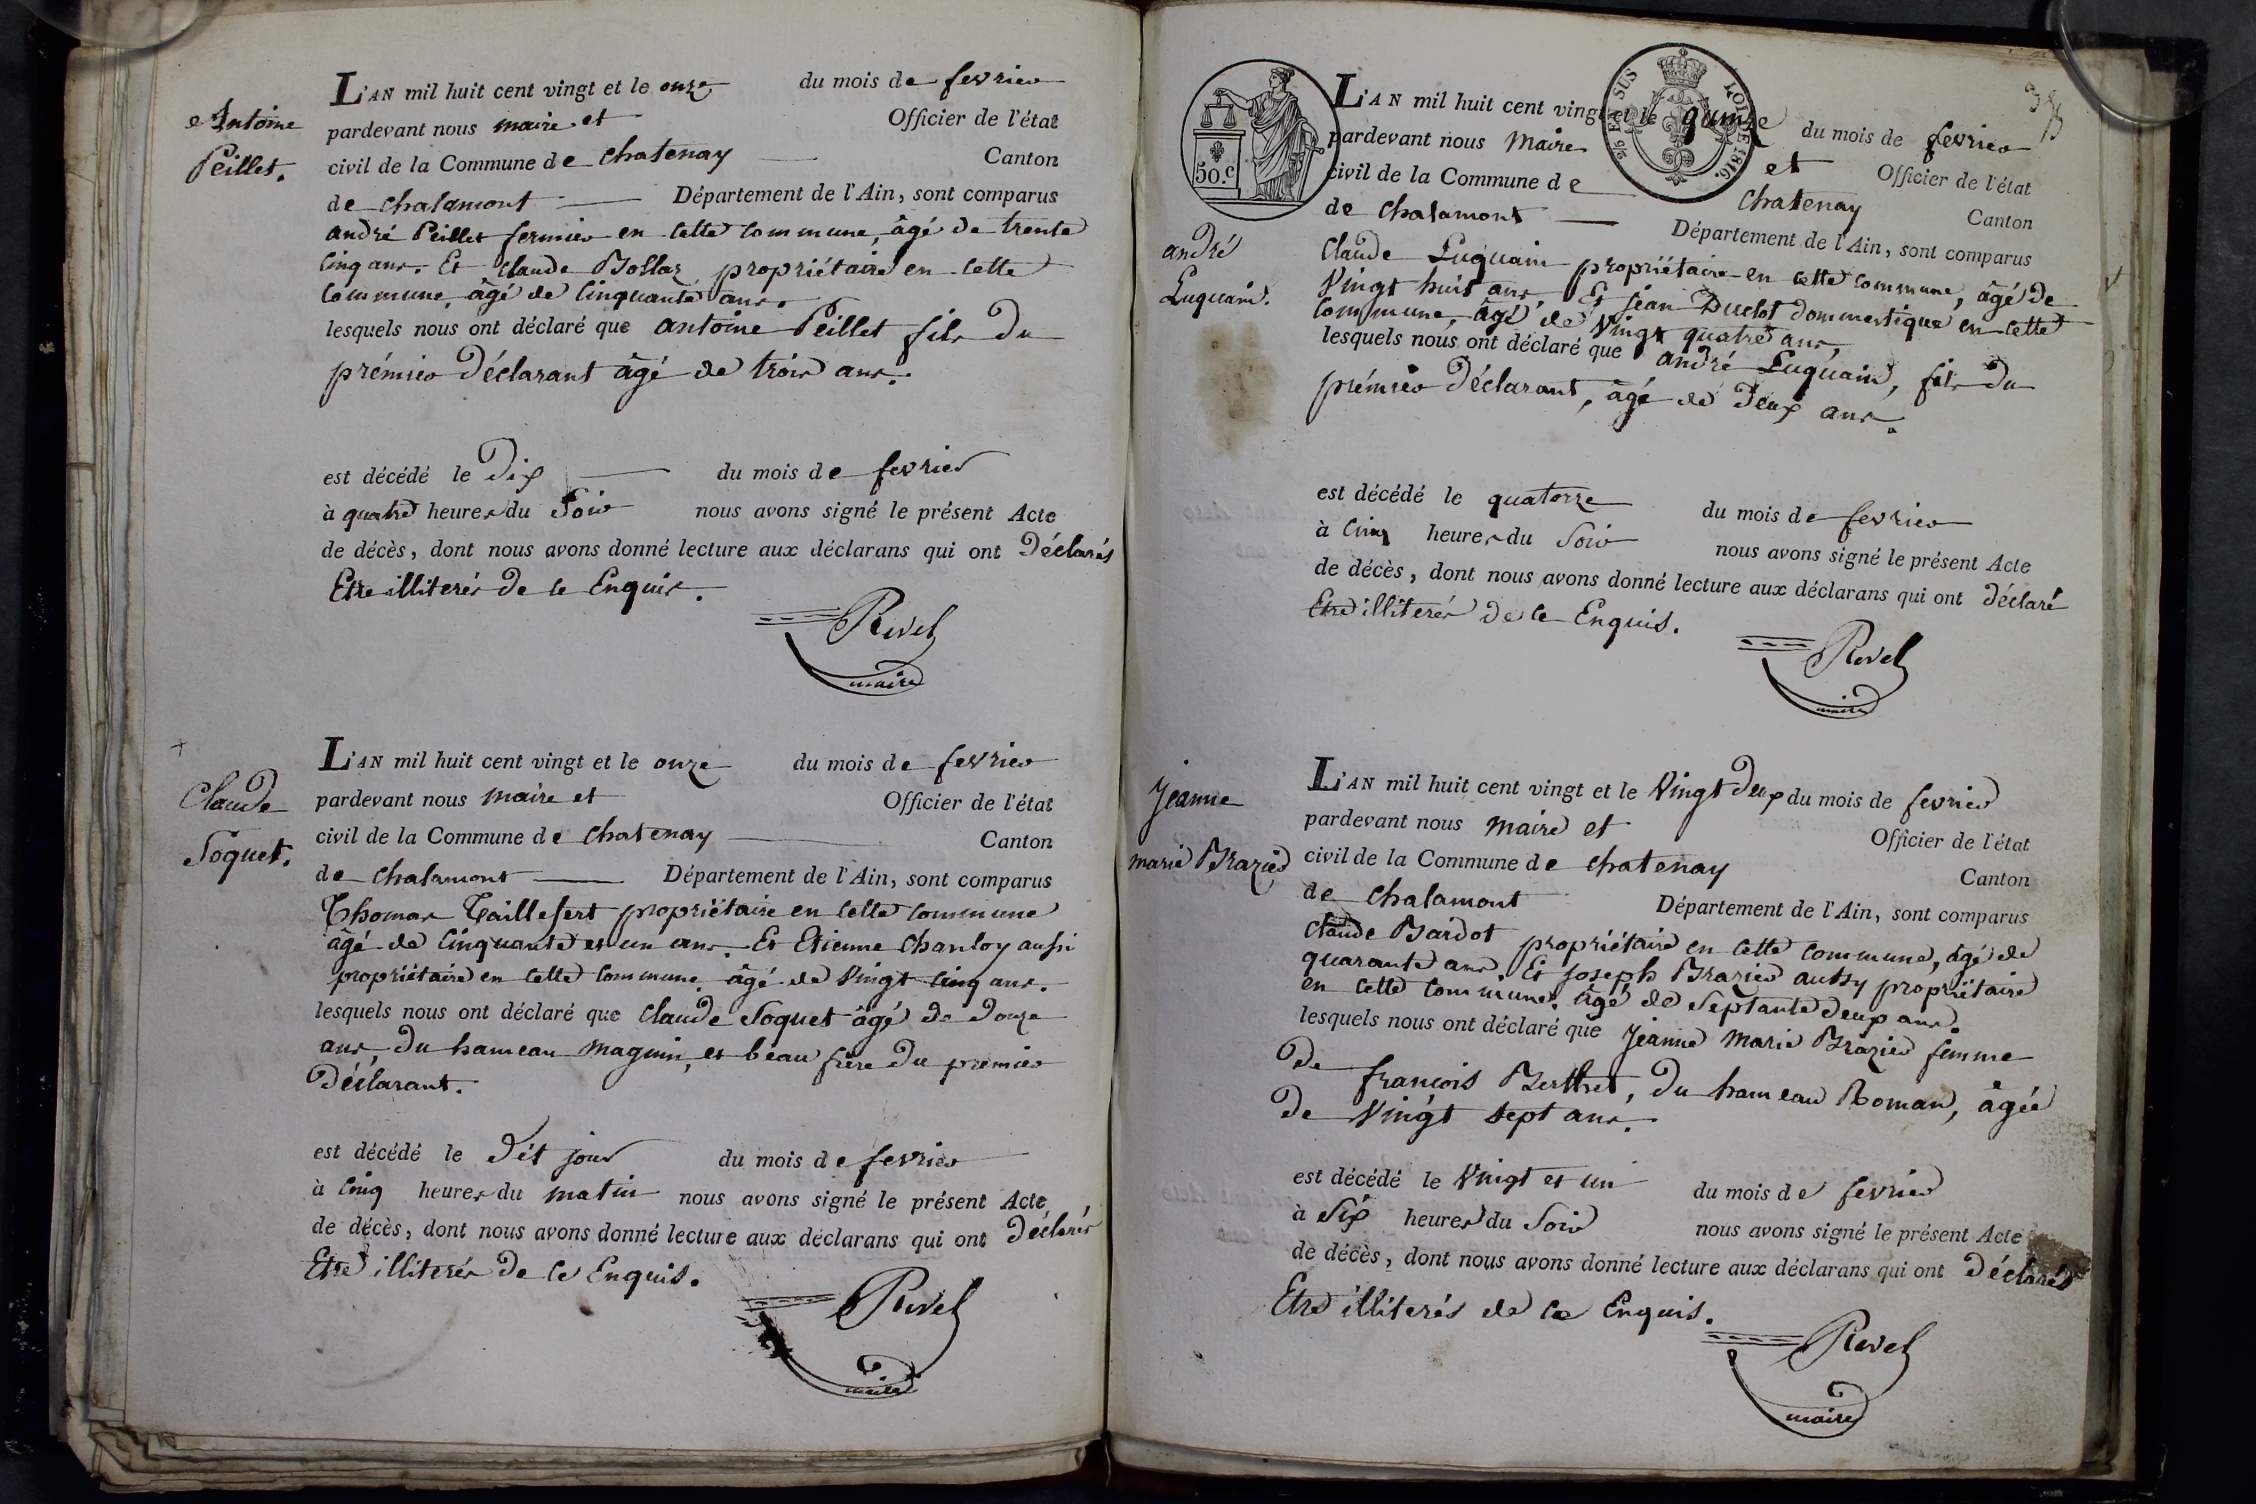 Antoine
Peillet.
L'AN mil huit cent vingt et le onze du mois de fevrier
pardevant nous maire et Officier de l'état
civil de la Commune de chatenay Canton
de chalamont Département de l'Ain, sont comparus
andré Peillet fermier en cette commune, âgé de trente
cinq ans. Et claude Bollaz propriétaire en cette
commune, âgé de cinquante ans.
lesquels nous ont déclaré que antoine Peillet fils du
prémier Déclarant âgé de trois ans.
est décédé le Dix du mois de fevrier
à quatre heures du Soir nous avons signé le présent Acte
de décès, dont nous avons donné lecture aux déclarans qui ont Déclarés
Etre illiterés de ce Enquis.
Revel
maire
Claude
Soquet.
L'AN mil huit cent vingt et le onze du mois de fevrier
pardevant nous maire et Officier de l'état
civil de la Commune de chatenay Canton
de chalamont Département de l'Ain, sont comparus
Thomas Taillefert propriétaire en cette commune
âgé de cinquante et un ans. Et Etienne Chanloy aussi
propriétaire en cette commune âgé de vingt cinq ans.
lesquels nous ont déclaré que claude Soquet âgé de douze
ans, du hameau magnin, et beau frère du premier
Déclarant.
est décédé le Dét jour du mois de fevrier
à cinq heures du matin nous avons signé le présent Acte
de décès, dont nous avons donné lecture aux déclarans qui ont Déclarés
Etre illiterés de ce Enquis.
Revel
maire
50.c
2/5 EN SUS LOI DE 1816.
L'AN mil huit cent vingt et le quinze du mois de fevrier
pardevant nous maire et Officier de l'état
civil de la Commune de chatenay Canton
de chalamont Département de l'Ain, sont comparus
andré
Luquain.
claude Luquain propriétaire en cette commune, âgé de
vingt huit ans, Et jean Duclot dommestique en cette
commune, âgé de vingt quatre ans,
lesquels nous ont déclaré que andré Luquain, fils du
prémier Déclarant, âgé de Deux ans.
est décédé le quatorze du mois de fevrier
à cinq heures du Soir nous avons signé le présent Acte
de décès, dont nous avons donné lecture aux déclarans qui ont déclaré
Etre illiterés de ce Enquis.
Revel
maire
Jeanne
marie Brazier
L'AN mil huit cent vingt et le vingt deux du mois de fevrier
pardevant nous maire et Officier de l'état
civil de la Commune de chatenay Canton
de chalamont Département de l'Ain, sont comparus
claude Bardot propriétaire en cette commune, âgé de
quarante ans, Et joseph Brazier aussy propriétaire
en cette commune. âgé de Septante deux ans.
lesquels nous ont déclaré que Jeanne Marie Brazier femme
De françois Berthet, du hameau Roman, âgée
De vingt sept ans.
est décédé le vingt et un du mois de fevrier
à Six heures du Soir nous avons signé le présent Acte
de décès, dont nous avons donné lecture aux déclarans qui ont Déclarés
Etre illiterés de ce Enquis.
Revel
maire